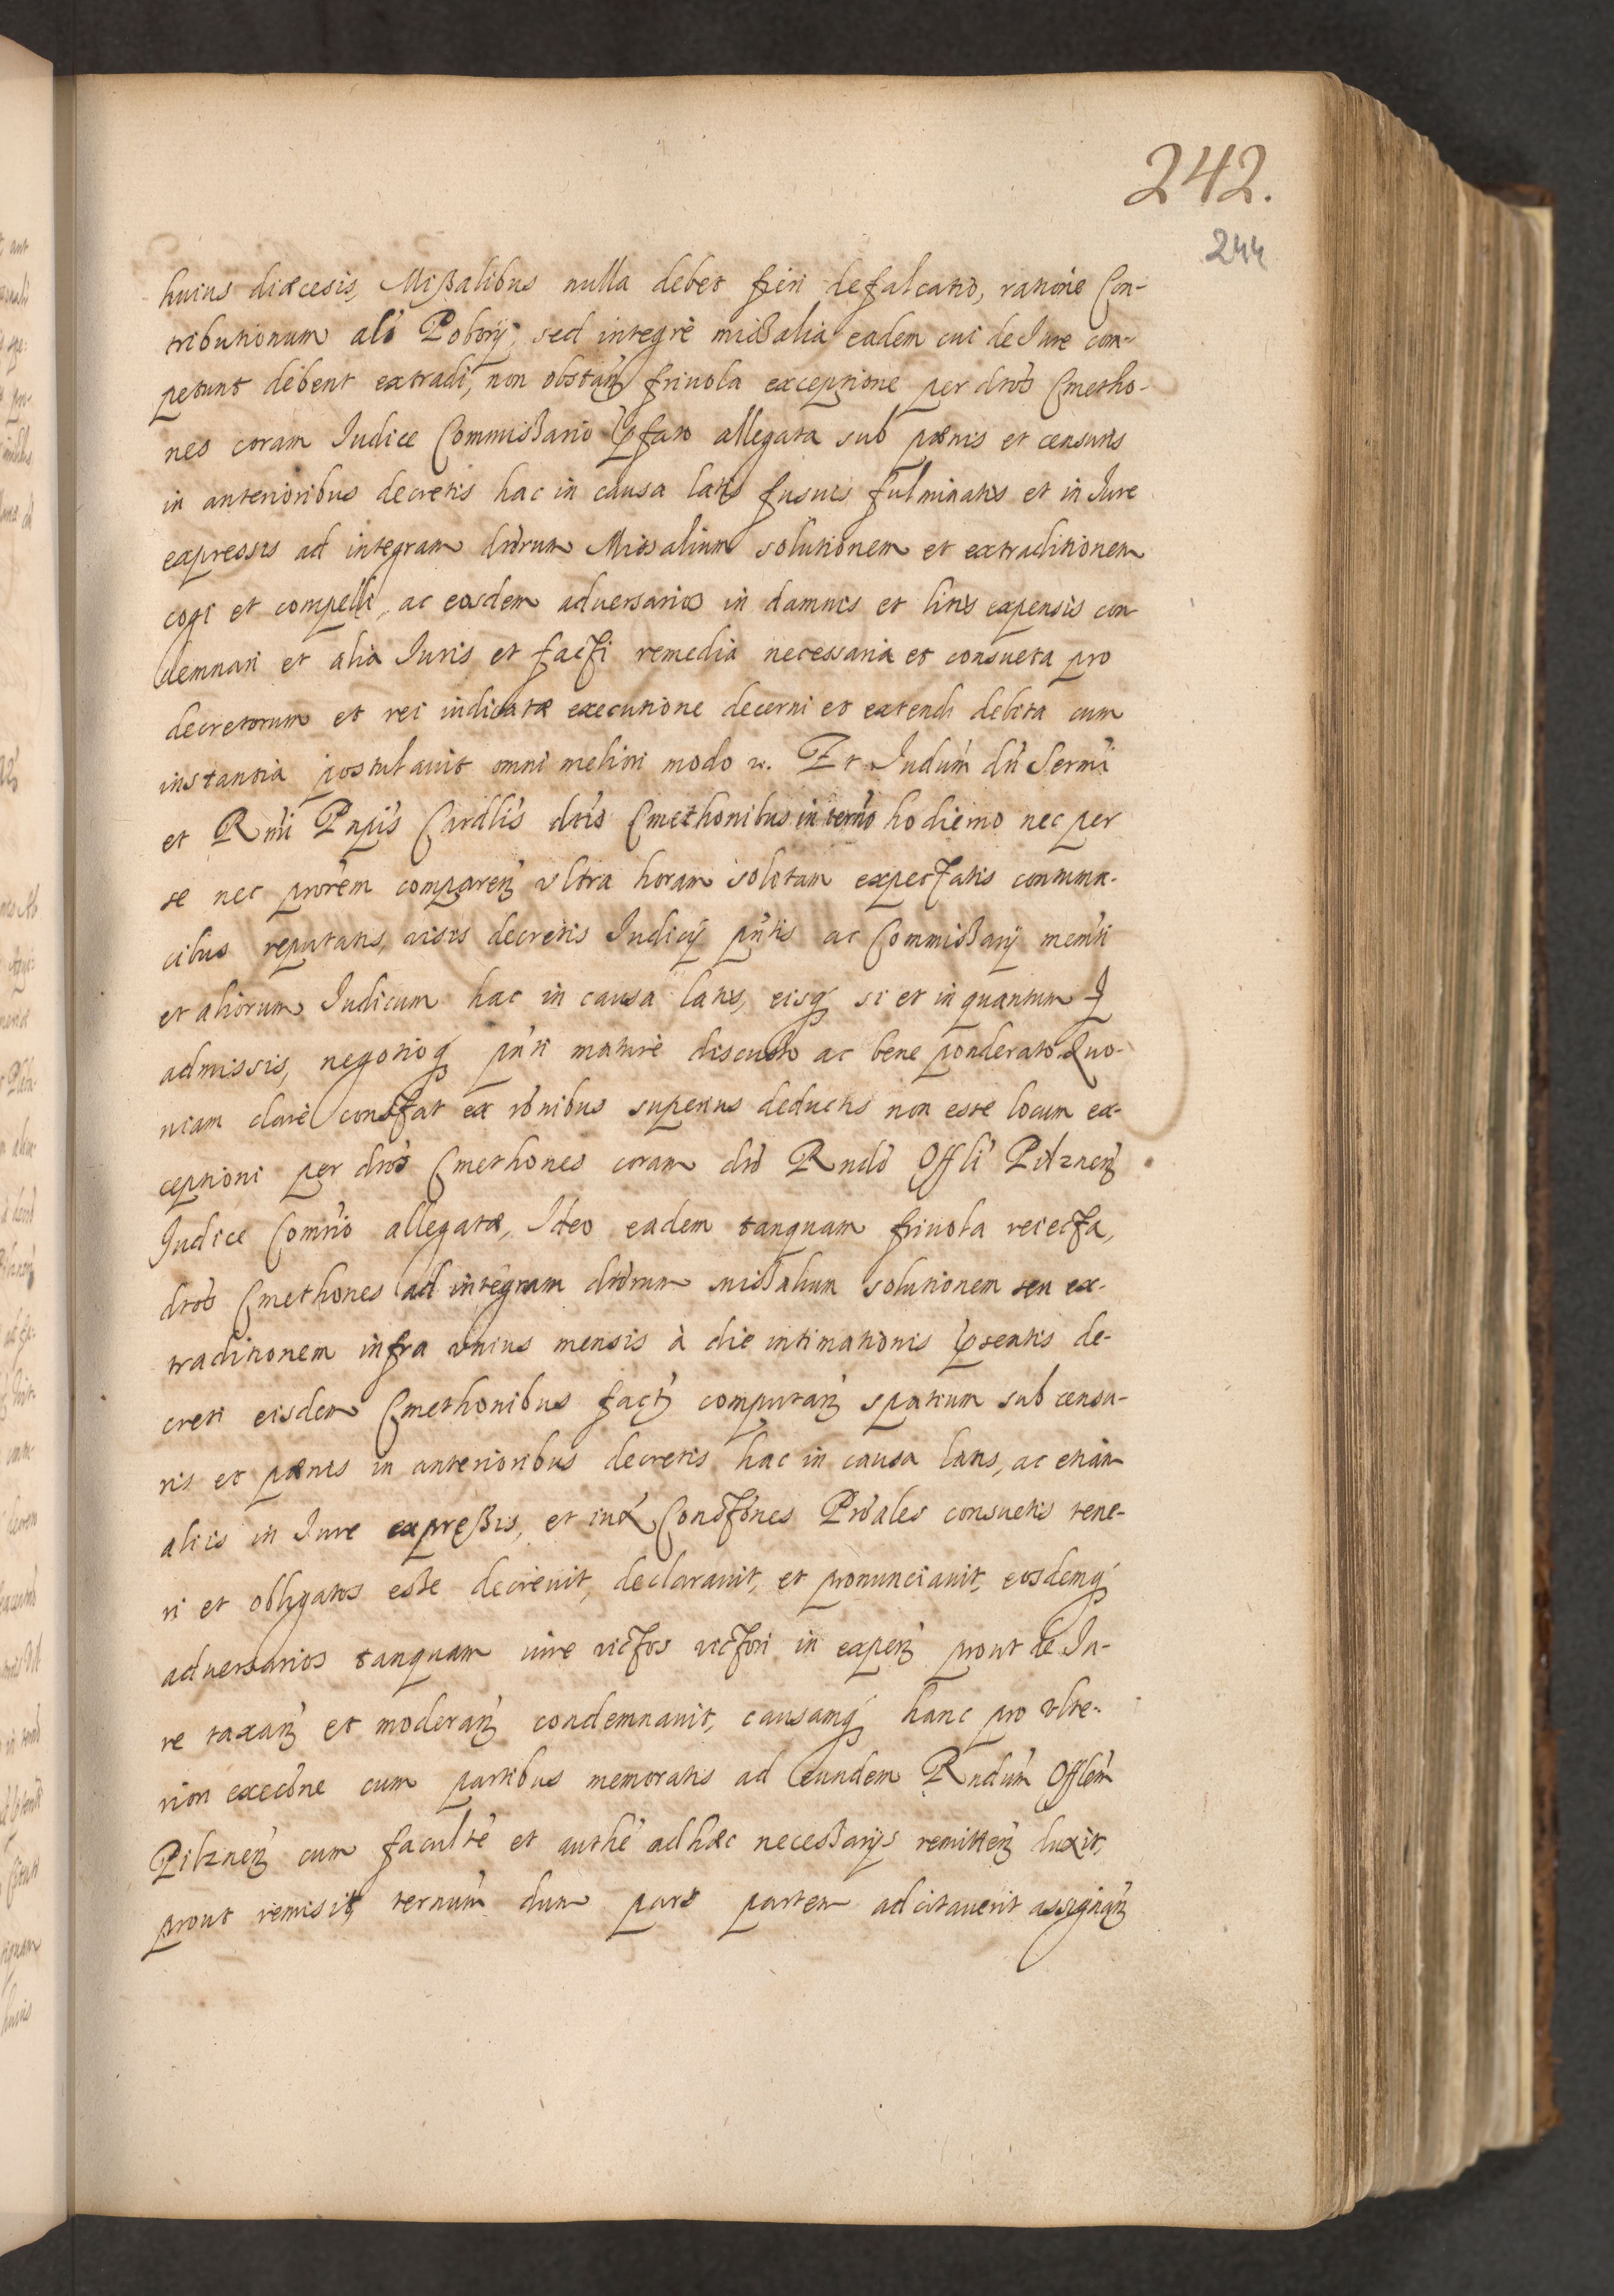 242.
244
huius diæcesis, Mißalibus nulla debet fieri defalcatio, ratione Con-
tributionum als Pobory; sed integrè mißalia eadem cui de Iure com-
petunt debent extradi, non obstan̄ friuola exceptione per dictos Cmetho-
nes coram Iudice Commißario p̄fato allegata sub pœnis et censuris
in anterioribus decretis hac in causa latis fusius fulminatis et in Iure
expressis ad integram dictorum Missalium solutionem et extraditionem
cogi et compelli, ac eosdem adversarios in damnis et litis expensis con
demnari et alia Iuris et facti remedia necessaria et consueta pro
decretorum et rei iudicatæ executione decerni et extendi debita cum
instantia postulauit omni meliori modo etc. Et Iudiu̅m dn̅i Sermi
et Rmi Pnpis Cardlis dctis Cmethonibus in termo hodierno nec per
se nec procrem comparen̄ vltra horam solitam expectatis contuma-
cibus reputatis, visis decretis Iudicij pntis ac Commißarij memti
et aliorum Iudicum hac in causa latis, eisq́ si et in quantum
admissis, negotioq́ pnti mature discusso ac bene ponderato Quo-
niam clarè constat ex rōnibus superius deductis non esse locum ex-
ceptioni per dctos Cmethones coram dcto Rndo Offli Pilznen̄
Iudice Comrio allegatæ, Ideo eadem tanquam friuola reiecta,
dctos Cmethones ad integram dctorum mißalium solutionem seu ex-
traditionem infra vnius mensis à die intimationis p̄sentis de-
creti eisdem Cmethonibus fact̄ computan̄ spatium sub censu-
ris et pœnis in anterioribus decretis hac in causa latis, ac etiam
alijs in Iure expreßis, et iux Constōnes Prōales consuetis tene-
ri et obligatos esse decreuit, declarauit, et pronunciauit, eosdemq́
adversarios tanquam iure victos victori in expen̄ prout de Iu-
re taxan̄ et moderan̄ condemnauit, causamq́ hanc pro vlte-
riori execōne cum partibus memoratis ad eundem Rndum Offlem
Pilznen̄ cum faculte et authe ad hæc neceßarijs remitten̄ duxit,
prout remisit, termum dum pars partem adcitauerit assignan̄